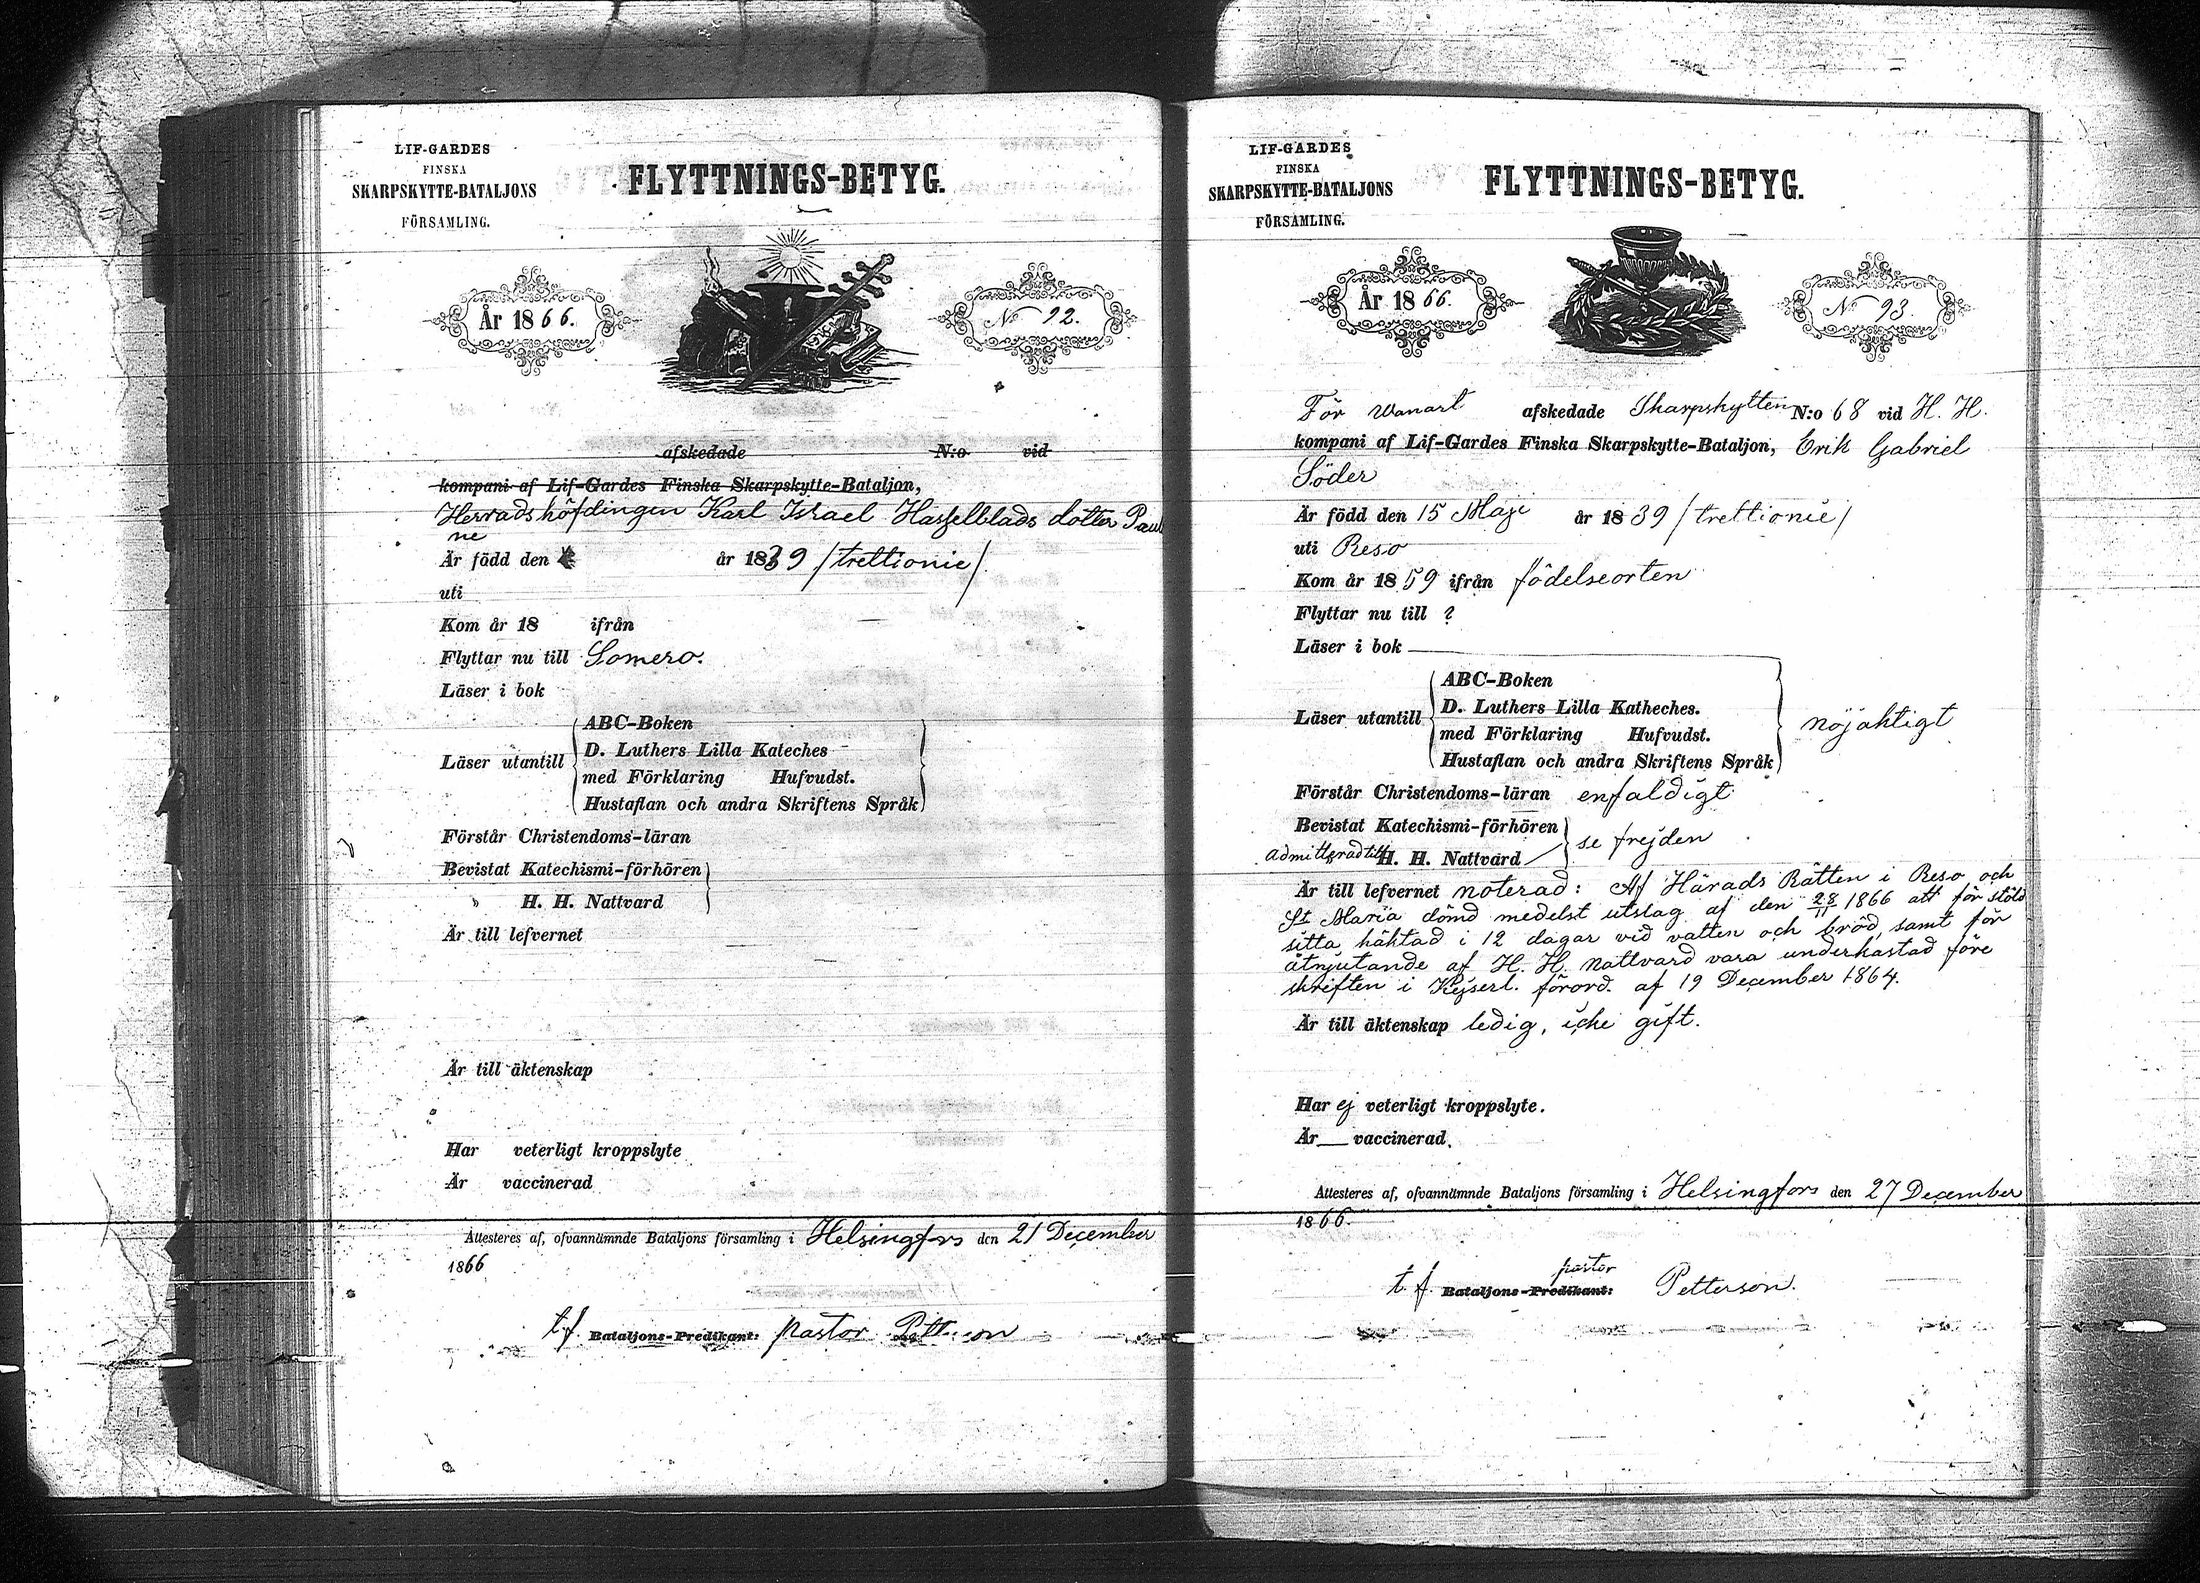 LIF-GARDES
FINSKA
SKARPSKYTTE-BATALJONS
FÖRSAMLING.
FLYTTNINGS-BETYG.
År 1866.
No 92.
afskedade N:o vid
kompani af Lif-Gardes Finska Skarpskytte-Bataljon,
Herradshöfdingen Karl Israel Hasselblads dotter Pauli
ne
Är född den år 1839 /trettionie/.
uti
Kom år 18 ifrån
Flyttar nu till Somero.
Läser i bok
Läser utantill
ABC-Boken
D. Luthers Lilla Kateches
med Förklaring Hufvudst.
Hustaflan och andra Skriftens Språk
Förstår Christendoms-läran
Bevistat Katechismi-förhören
» H. H. Nattvard
Är till lefvernet
Är till äktenskap
Har veterligt kroppslyte
Är vaccinerad
Attesteres af, ofvannämnde Bataljons församling i Helsingfors den 21 December
1866
t.f. Bataljons-Predikant: pastor Petterson
LIF-GARDES
FINSKA
SKARPSKYTTE-BATALJONS
FÖRSAMLING.
FLYTTNINGS-BETYG.
År 1866.
No 93.
För wanart afskedade Skarpskytten N:o 68 vid H. H.
kompani af Lif-Gardes Finska Skarpskytte-Bataljon, Erik Gabriel
Söder
Är född den 15 Maji år 1839 /trettionie/
uti Reso
Kom år 1859 ifrån födelseorten
Flyttar nu till ?
Läser i bok
Läser utantill
ABC-Boken
D. Luthers Lilla Katheches.
med Förklaring Hufvudst.
Hustaflan och andra Skriftens Språk
nöjaktigt
Förstår Christendoms-läran enfaldigt
Bevistat Katechismi-förhören
se frejden
admitterad till H. H. Nattvard
Är till lefvernet noterad: Af Härads Rätten i Reso och
St Maria dömd medelst utslag af den 28/11 1866 att för stöld
sitta häktad i 12 dagar vid vatten och bröd, samt för
åtnjutande af H. H. Nattvard vara underkastad före
skriften i Kejserl. förord. af 19 December 1864.
Är till äktenskap ledig, icke gift.
Har ej veterligt kroppslyte.
Är vaccinerad.
Attesteres af, ofvannämnde Bataljons församling i Helsingfors den 27 December
1866.
pastor
t.f. Bataljons-Predikant: Petterson.